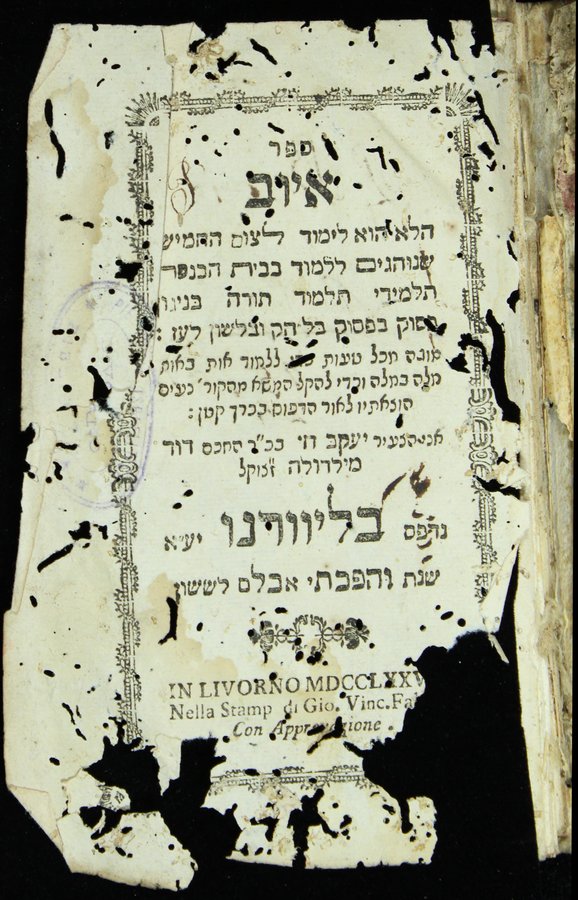 ספר
איוב
הלא הוא לימוד לצום החמישי
שנוהגים ללמוד בבית הכנסת
תלמידי תלמוד תורה בניגון
פסוק בפסוק בל׳ הק ובלשון לעז :
מוגה מכל טעות כדי ללמוד אות באות
מלה במלה וכדי להקל המשא מהקור׳ נעים
הוצאתיו לאור הדפוס בכרך קטן :
אני הצעיר יעקב חי בכ״ר החכם דוד
מילדולה
נדפס בליוורנו יע״א
שנת והפכתי אבלם לששון
IN LIVORNO MDCCLXXV
Nella Stamp di Gio. Vinc. Fal
Con Approvazione